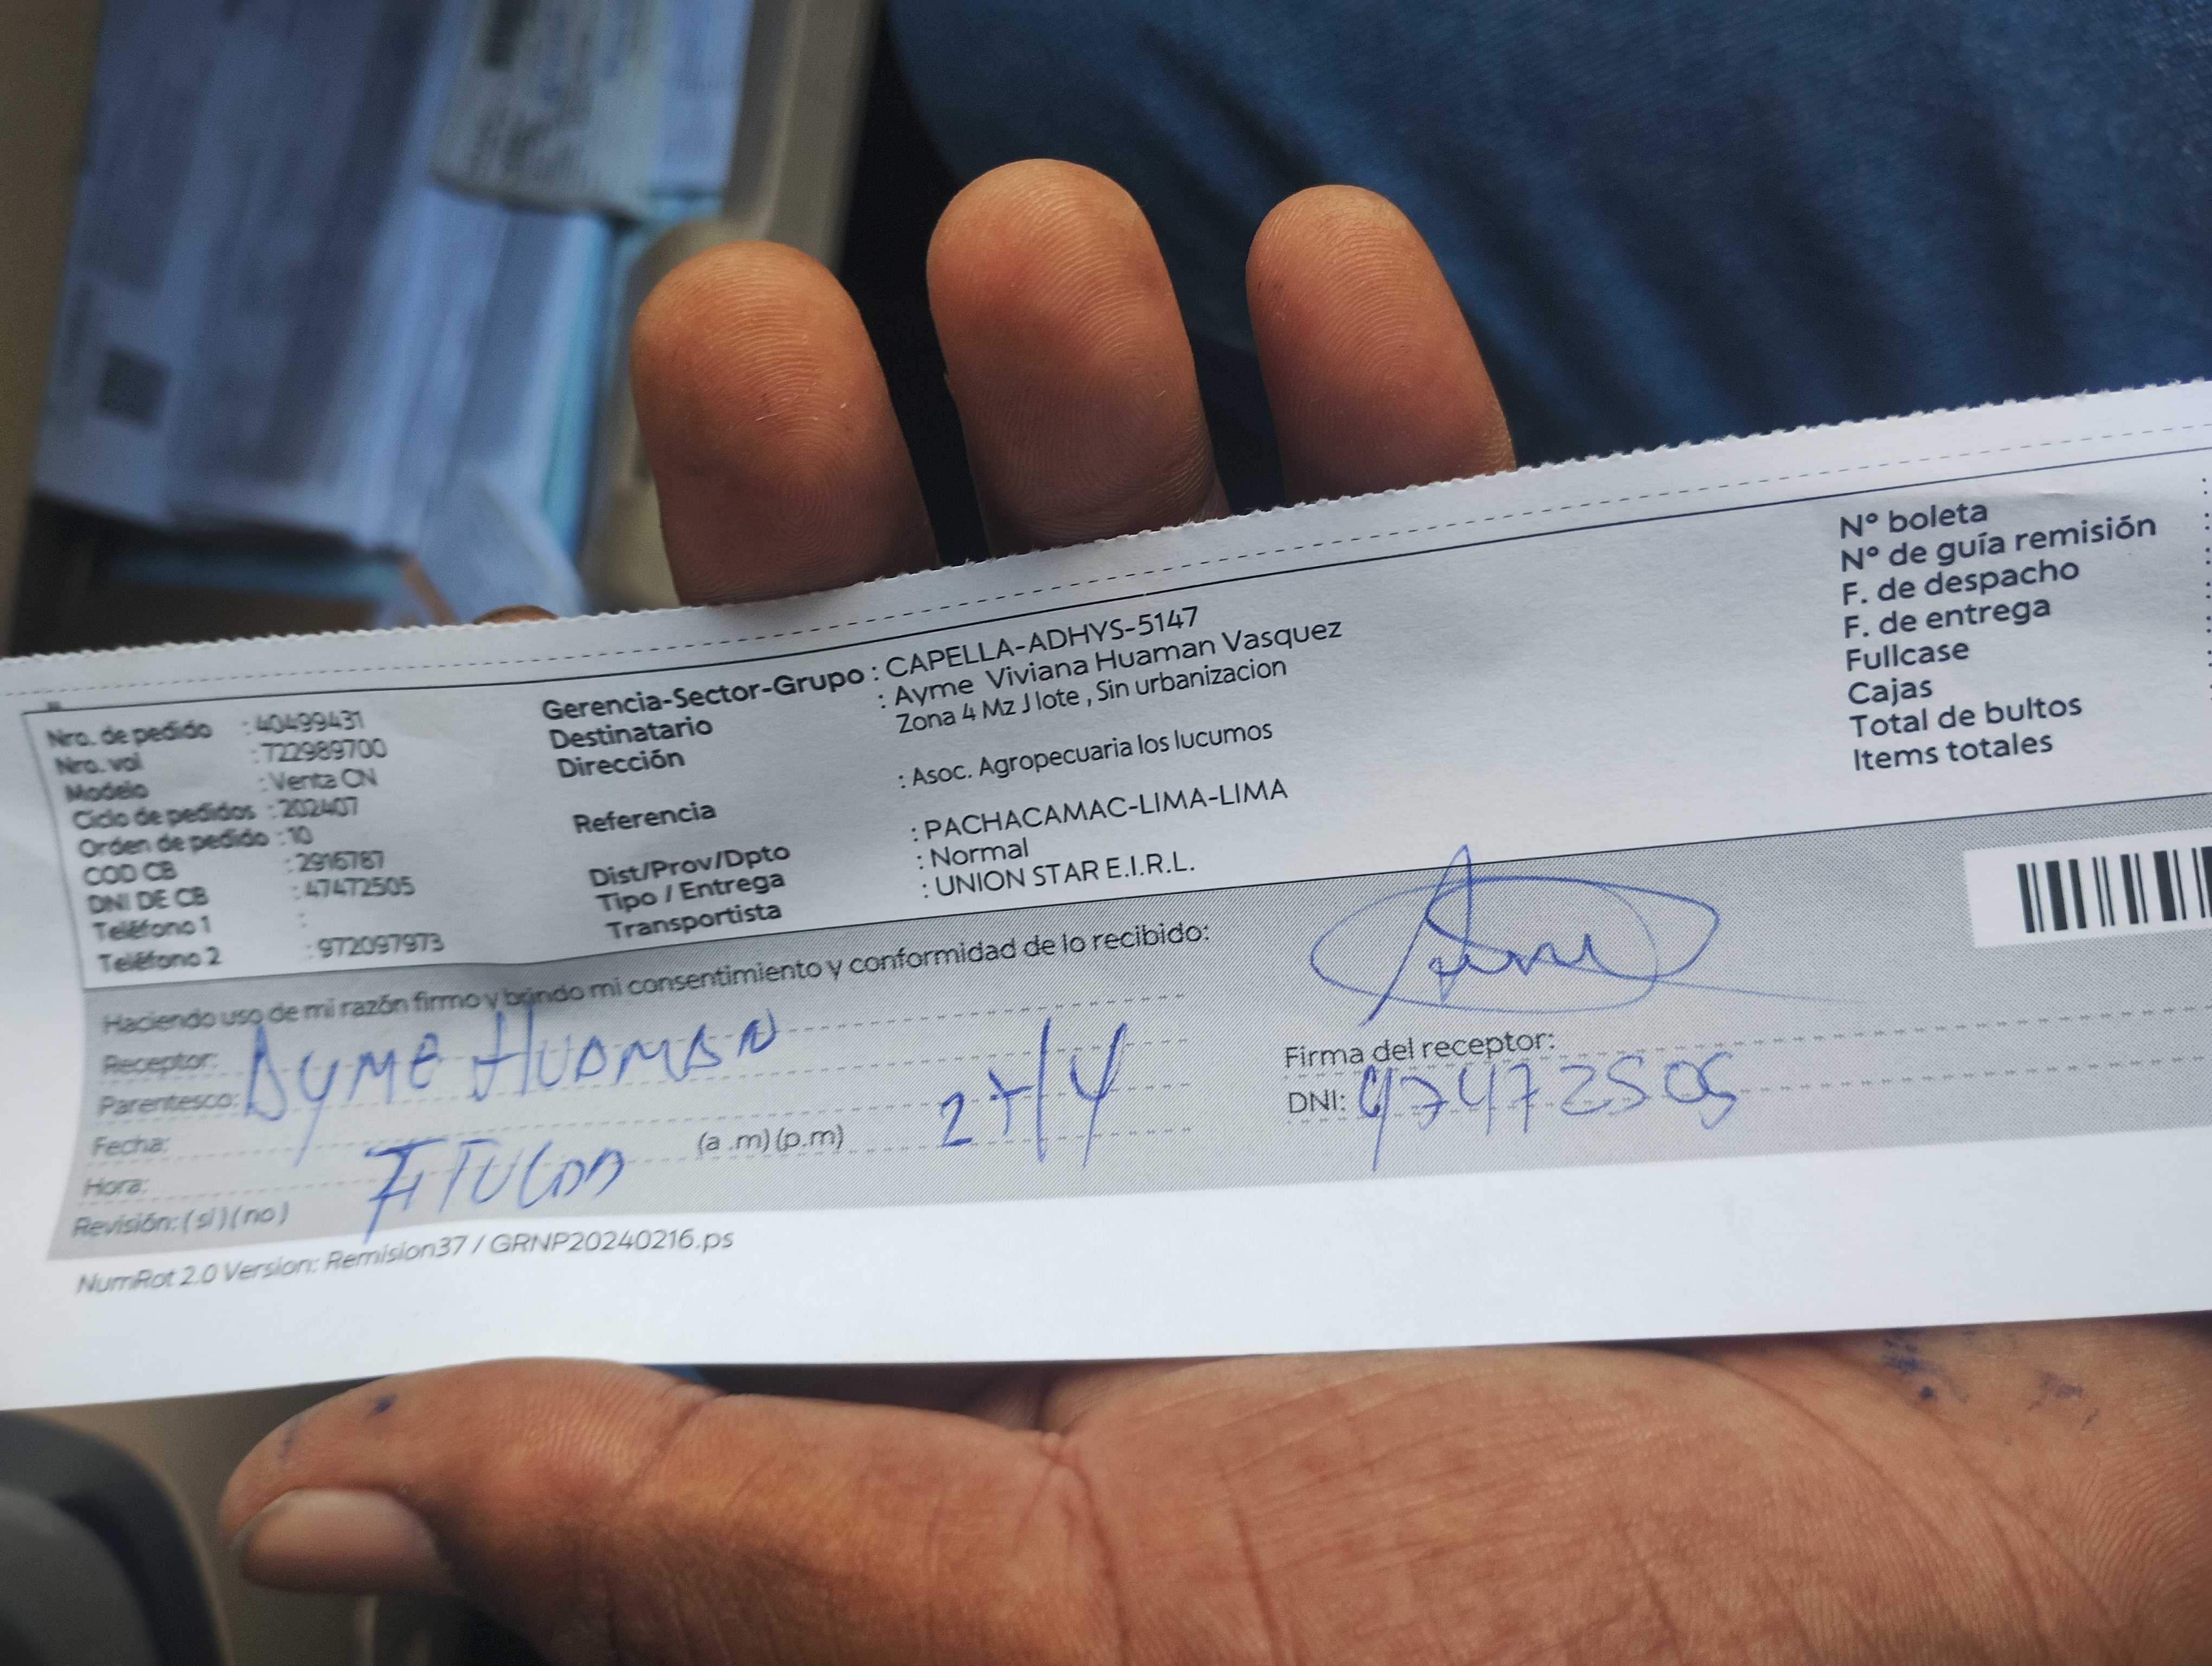 Nro. de pedido : 40499431
Nro. vol : 722989700
Modelo : Venta CN
Ciclo de pedidos : 202407
Orden de pedido : 10
COD CB : 2916787
DNI DE CB : 47472505
Teléfono 1 :
Teléfono 2 : 972097973
Gerencia-Sector-Grupo : CAPELLA-ADHYS-5147
Destinatario : Ayme Viviana Huaman Vasquez
Dirección Zona 4 Mz J lote , Sin urbanizacion
Referencia : Asoc. Agropecuaria los lucumos
Dist/Prov/Dpto : PACHACAMAC-LIMA-LIMA
Tipo / Entrega : Normal
Transportista : UNION STAR E.I.R.L.
Nº boleta
Nº de guía remisión
F. de despacho
F. de entrega
Fullcase
Cajas
Total de bultos
Items totales
Haciendo uso de mi razón firmo y brindo mi consentimiento y conformidad de lo recibido:
Receptor: AYME HUAMAN
Parentesco:
Fecha: 27/4
Hora: (a .m) (p.m)
TITULAR
Revisión: ( si ) ( no )
Firma del receptor:
DNI: 47472505
NumRot 2.0 Version: Remision37 / GRNP20240216.ps